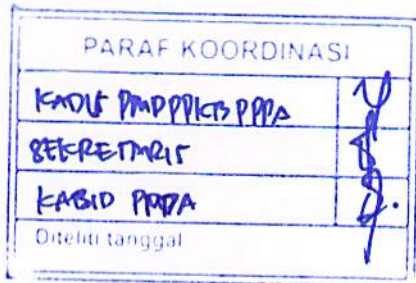 PARAF KOORDINASI
KADIS PMDPPKBPPPA
SEKRETARIS
KABID PPPA
Diteliti tanggal